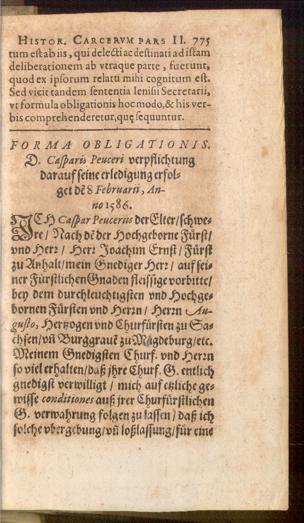 HISTOR. CARCERVM PARS II. 775
tum est ab iis, qui delecti ac destinati ad istam
deliberationem ab vtraque parte, fuerunt,
quod ex ipsorum relatu mihi cognitum est.
Sed vicit tandem sententia lenis Secretarii,
vt formula obligationis hoc modo, & his ver-
bis comprehenderetur, quę sequuntur.
FORMA OBLIGATIONIS.
D. Casparis Peuceri verpflichtung
darauf seine erledigung erfol-
get dē 8 Februarii, An-
no 1586.
ICH Caspar Peucerus der Elter/schwe-
re/ Nach dē der Hochgeborne Fürst/
vnd Herr/ Herr Joachim Ernst/ Fürst
zu Anhalt/mein Gnediger Herr/ auf sei-
ner Fürstlichen Gnaden fleissige vorbitte/
bey dem durchleuchtigsten vnd Hochge-
bornen Fürsten vnd Herrn/ Herrn Au-
gusto, Hertzogen vnd Churfürsten zu Sa-
chsen/vñ Burggrauē zu Mägdeburg/etc.
Meinem Gnedigsten Churf. vnd Herrn
so viel erhalten/daß jhre Churf. G. entlich
gnedigst verwilligt/ mich auf etzliche ge-
wisse conditiones auß jrer Churfürstlichen
G. verwahrung folgen zu lassen/ daß ich
solche vbergebung/vñ loßlassung/für eine